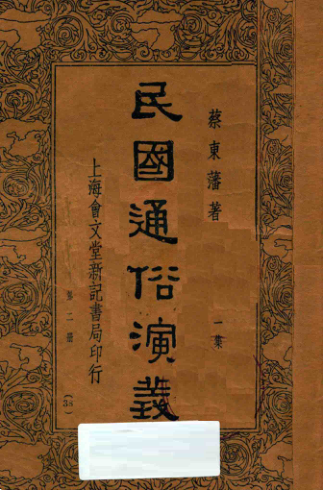 蔡東藩著
一集
民國通俗演義
上海會文堂新記書局印行
第二冊